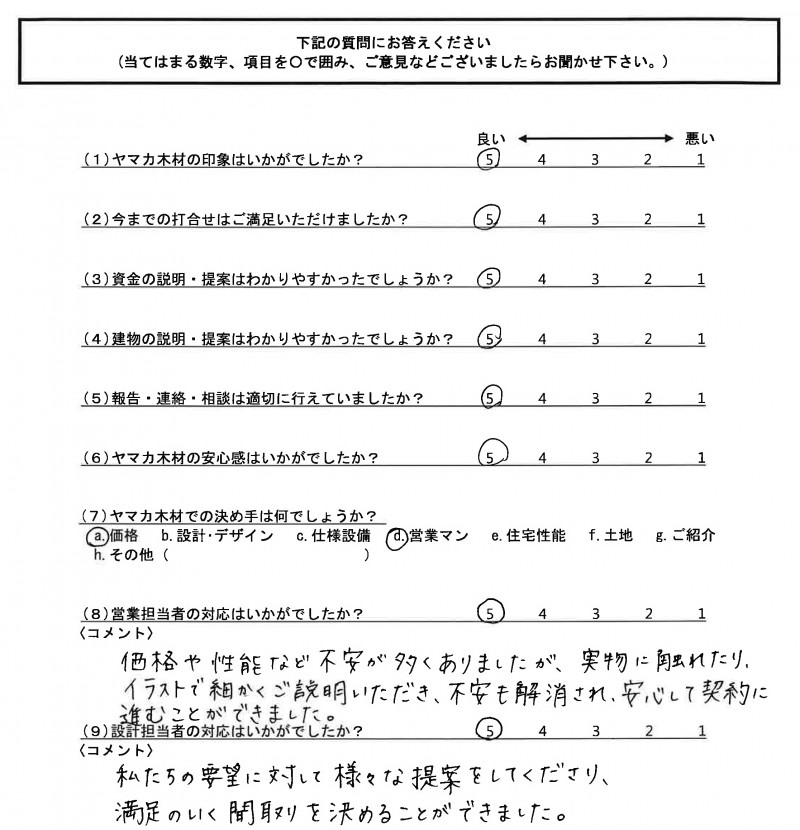 下記の質問にお答えください
(当てはまる数字、項目を〇で囲み、ご意見などございましたらお聞かせ下さい。)
良い 悪い
(1)ヤマカ木材の印象はいかがでしたか? 5 4 3 2 1
(2)今までの打合せはご満足いただけましたか? 5 4 3 2 1
(3)資金の説明・提案はわかりやすかったでしょうか? 5 4 3 2 1
(4)建物の説明・提案はわかりやすかったでしょうか? 5 4 3 2 1
(5)報告・連絡・相談は適切に行えていましたか? 5 4 3 2 1
(6)ヤマカ木材の安心感はいかがでしたか? 5 4 3 2 1
(7)ヤマカ木材での決め手は何でしょうか?
a.価格 b.設計・デザイン c.仕様設備 d.営業マン e.住宅性能 f.土地 g.ご紹介
h.その他( )
(8)営業担当者の対応はいかがでしたか? 5 4 3 2 1
〈コメント〉
価格や性能など不安が多くありましたが、実物に触れたり、
イラストで細かくご説明いただき、不安も解消され、安心して契約に
進むことができました。
(9)設計担当者の対応はいかがでしたか? 5 4 3 2 1
〈コメント〉
私たちの要望に対して様々な提案をしてくださり、
満足のいく間取りを決めることができました。